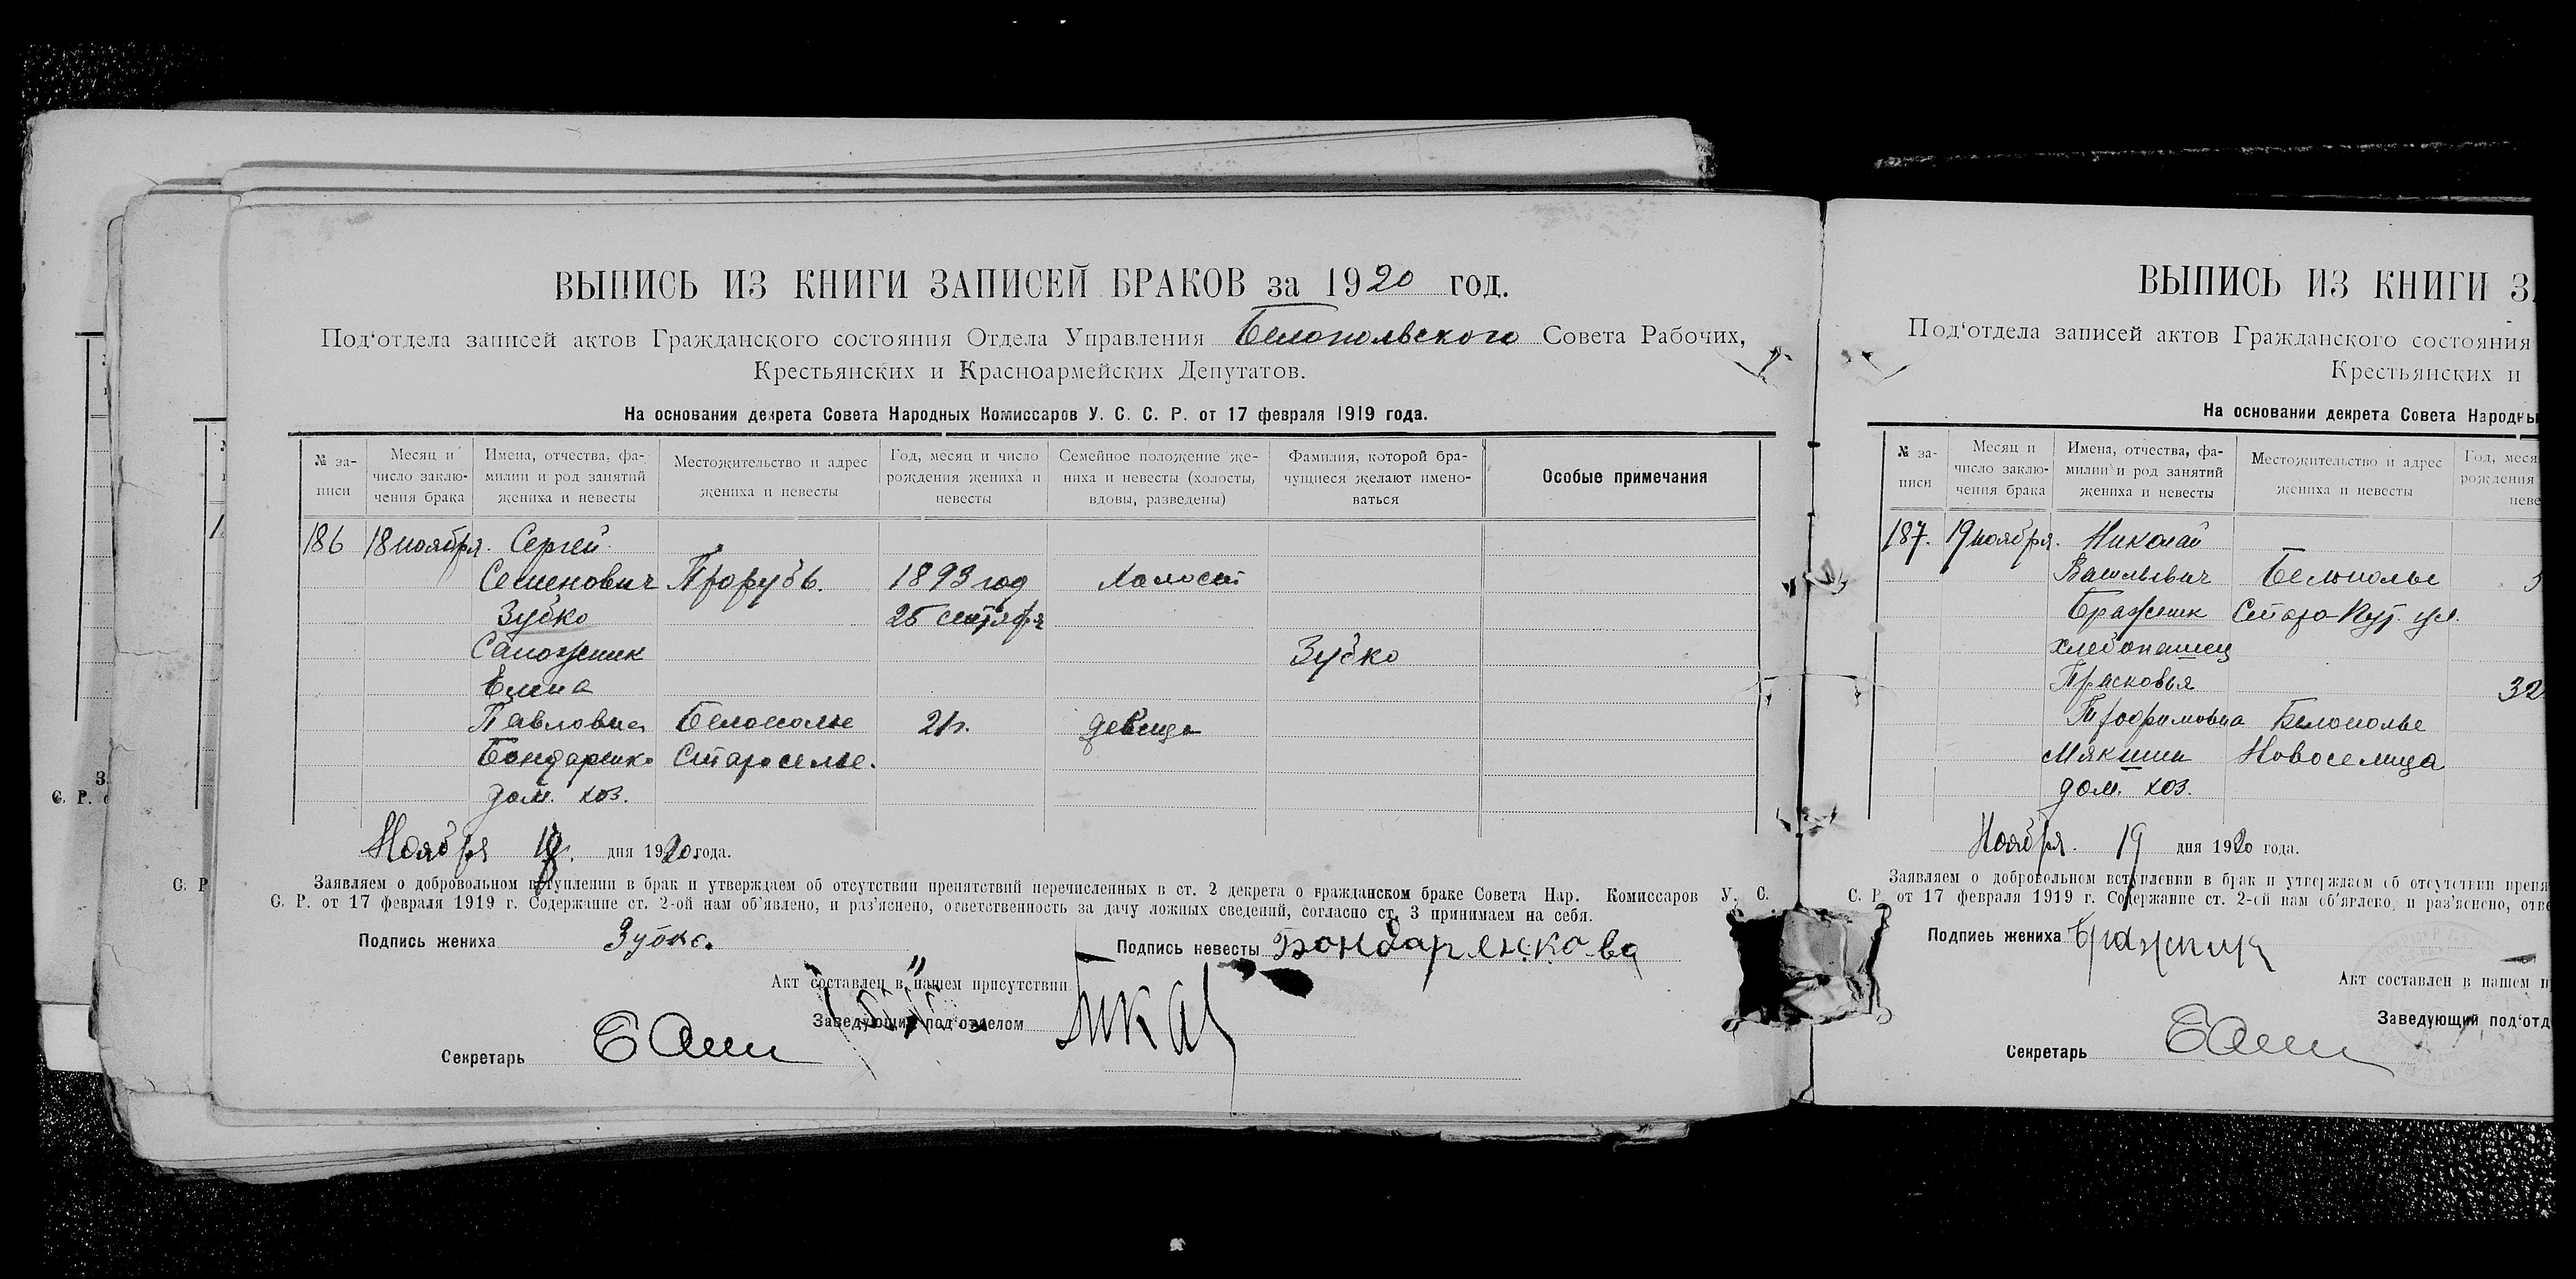 ВЫПИСЬ ИЗ КНИГИ ЗАПИСЕЙ БРАКОВ за 1920 год.
Под‘отдела записей актов Гражданского состояния Отдела Управления Белопольского Совета Рабочих,
Крестьянских и Красноармейских Депутатов.
На основании декрета Совета Народных Комиссаров У. С. С. Р. от 17 февраля 1919 года.
№ за-писи
Месяц и число заклю-чения брака
Имена, отчества, фа-милии и род занятий жениха и невесты
Местожительство и адрес жениха и невесты
Год, месяц и число рождения жениха и невесты
Семейное положение же-ниха и невесты (холосты, вдовы, разведены)
Фамилия, которой бра-чущиеся желают имено-ваться
Особые примечания
186 18 ноября. Сергей
Семенович Прорубь. 1893 год Холост
Зубко 25 сентября
Сапожник Зубко
Елена
Павловна Белополье 21 г. девица
Бондаренко Староселье.
дом. хоз.
Ноября 18. дня 1920 года.
Заявляем о добровольном вступлении в брак и утверждаем об отсутствии препятствий перечисленных в ст. 2 декрета о гражданском браке Совета Нар. Комиссаров У. С.
С. Р. от 17 февраля 1919 г. Содержание ст. 2-ой нам об‘явлено, и раз‘яснено, ответственность за дачу ложных сведений, согласно ст. 3 принимаем на себя.
Подпись жениха Зубко. Подпись невесты Бондаренкова
Акт составлен в нашем присутствии
Заведующий под‘отделом
Секретарь
ВЫПИСЬ ИЗ КНИГИ ЗА
Под‘отдела записей актов Гражданского состояния
Крестьянских и
На основании декрета Совета Народны
№ за-писи
Месяц и число заклю-чения брака
Имена, отчества, фа-милии и род занятий жениха и невесты
Местожительство и адрес жениха и невесты
Год, меся
рождения
неве
187. 19 ноября. Николай
Васильевич Белополье 3
Бражник Старо-Пут. ул.
хлебопашец
Прасковья 32
Трофимовна Белополье
Мякшин Новоселица
дом. хоз.
Ноября. 19 дня 1920 года.
Заявляем о добровольном вступлении в брак и утверждаем об отсутствии препя
С. Р. от 17 февраля 1919 г. Содержание ст. 2-ой нам об‘явлено, и раз‘яснено, отве
Подпись жениха Бражник
Акт составлен в нашем п
Заведующий под‘отд
Секретарь